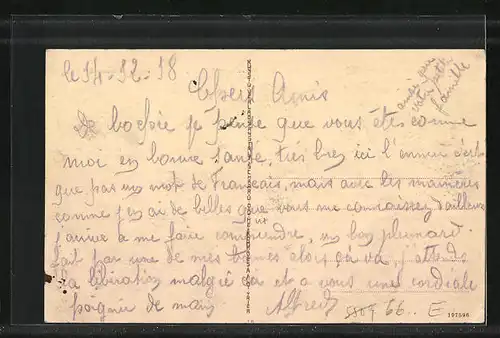 le 14-12-18
Chers Amis
ainsi que
votre petite
famille
Bochie je pense que vous êtes comme
moi en bonne santé, très bien ici l'ennui c'est
que pas un mot de Français, mais avec les manières
comme j'en ai de belles que vous me connaissez d'ailleurs
j'arrive à me faire comprendre, un bon plumard
fait par une de mes bonnes alors ça va, j'attends
la libération malgré ça et a vous une cordiale
poignée de mains Alfred
66.. E
197596